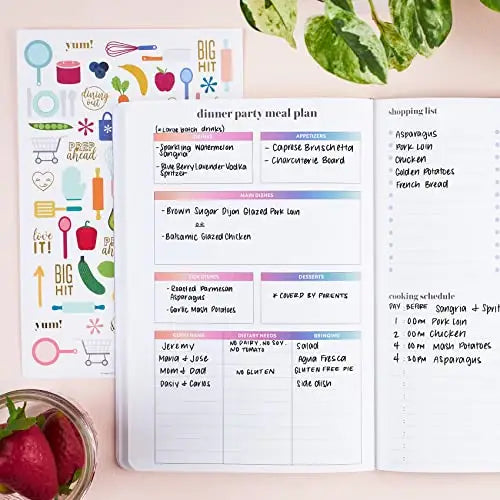 yum!
BIG
HIT
dining
out
PREP
ahead
LOVE
iT!
PREP
BIG
HIT
BIG
HIT
yum!
dinner party meal plan
(*Large batch drinks)
DRINKS
-Sparkling Watermelon
Sangria
-Blue Berry Lavender Vodka
Spritzer
APPETIZERS
- Caprese Bruschetta
- Charcuterie Board
MAIN DISHES
- Brown Sugar Dijon Glazed Pork Loin
OR
- Balsamic Glazed Chicken
SIDE DISHES
- Roasted Parmesan
Asparagus
- Garlic Mash Potatoes
DESSERTS
* COVERD BY PARENTS
GUEST NAME DIETARY NEEDS BRINGING
Jeremy NO DAIRY, NO SOY, NO TOMATO Salad
Maria & Jose Agua Fresca
Mom & Dad NO GLUTEN GLUTEN FREE PIE
Daisy & Carlos Side dish
shopping list
Asparagus
Pork Loin
Chicken
Golden Potatoes
French Bread
cooking schedule
DAY BEFORE Sangria & Sprit
1:00PM Pork Loin
2:00PM Chicken
4:00PM Mash Potatoes
4:30PM Asparagus